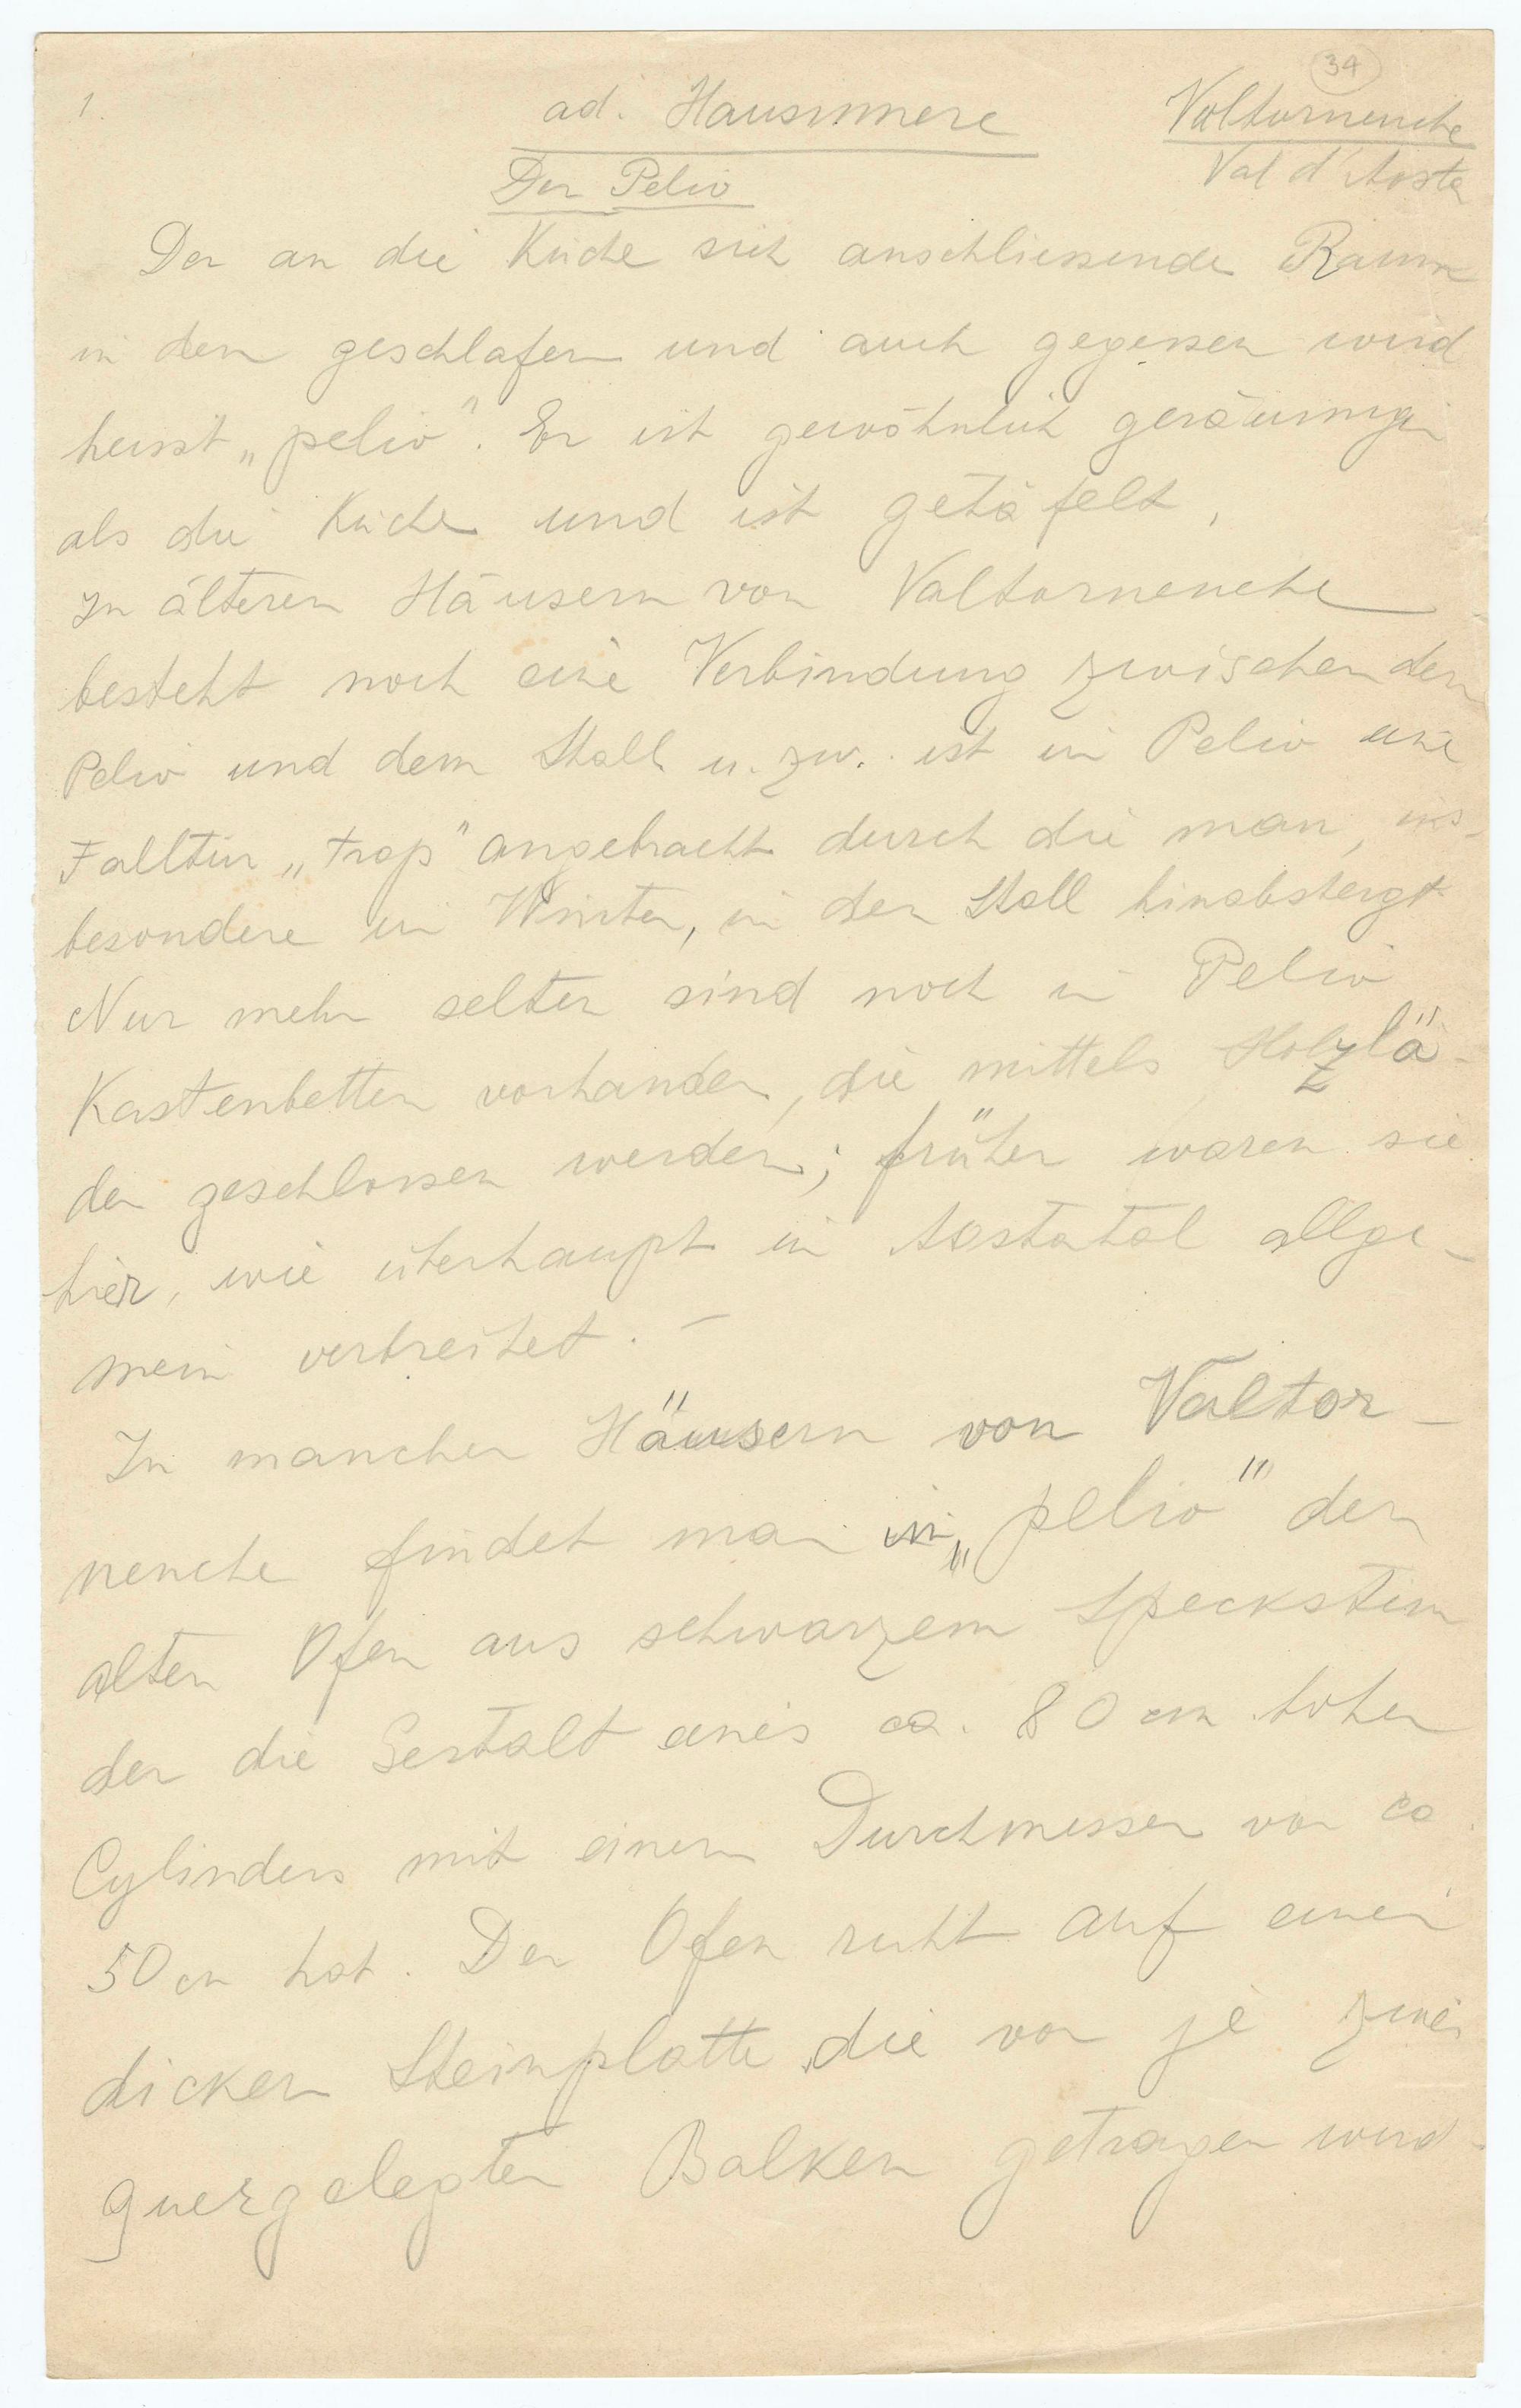 34
1.
ad. Hausinnere
Valtornenche
Val d'Aosta
Der Pelio
Der an die Küche sich anschliessende Raum
in dem geschlafen und auch gegessen wird
heisst „pelio". Er ist gewöhnlich geräumiger
als die Küche und ist getäfelt.
In älteren Häusern von Valtornenche
besteht noch eine Verbindung zwischen dem
Pelio und dem Stall u. zw. ist im Pelio eine
Falltür „trap" angebracht durch die man, ins-
besondere im Winter, in den Stall hinabsteigt.
Nur mehr selten sind noch im Pelio
Kastenbetten vorhanden, die mittels Holzlä-
den geschlossen werden; früher waren sie
hier, wie überhaupt im Aostatal allge-
mein verbreitet. –
In manchen Häusern von Valtor-
nenche findet man im „pelio" den
alten Ofen aus schwarzem Speckstein
der die Gestalt eines ca. 80 cm hohen
Cylinders mit einem Durchmesser von ca.
50 cm hat. Der Ofen ruht auf einer
dicken Steinplatte, die von je zwei
quergelegten Balken getragen wird.